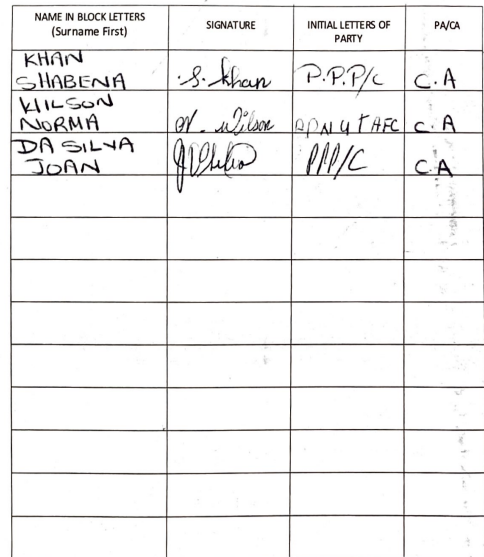 NAME IN BLOCK LETTERS
(Surname First)
SIGNATURE
INITIAL LETTERS OF
PARTY
PA/CA
KHAN
SHABENA
S. Khan
P.P.P/C
C.A
WILSON
NORMA
N. Wilson
APNU + AFC
C.A
DA SILVA
JOAN
PPP/C
C.A